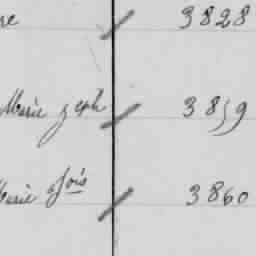 re 3828
Marie Jeph 3859
Marie Fois 3860